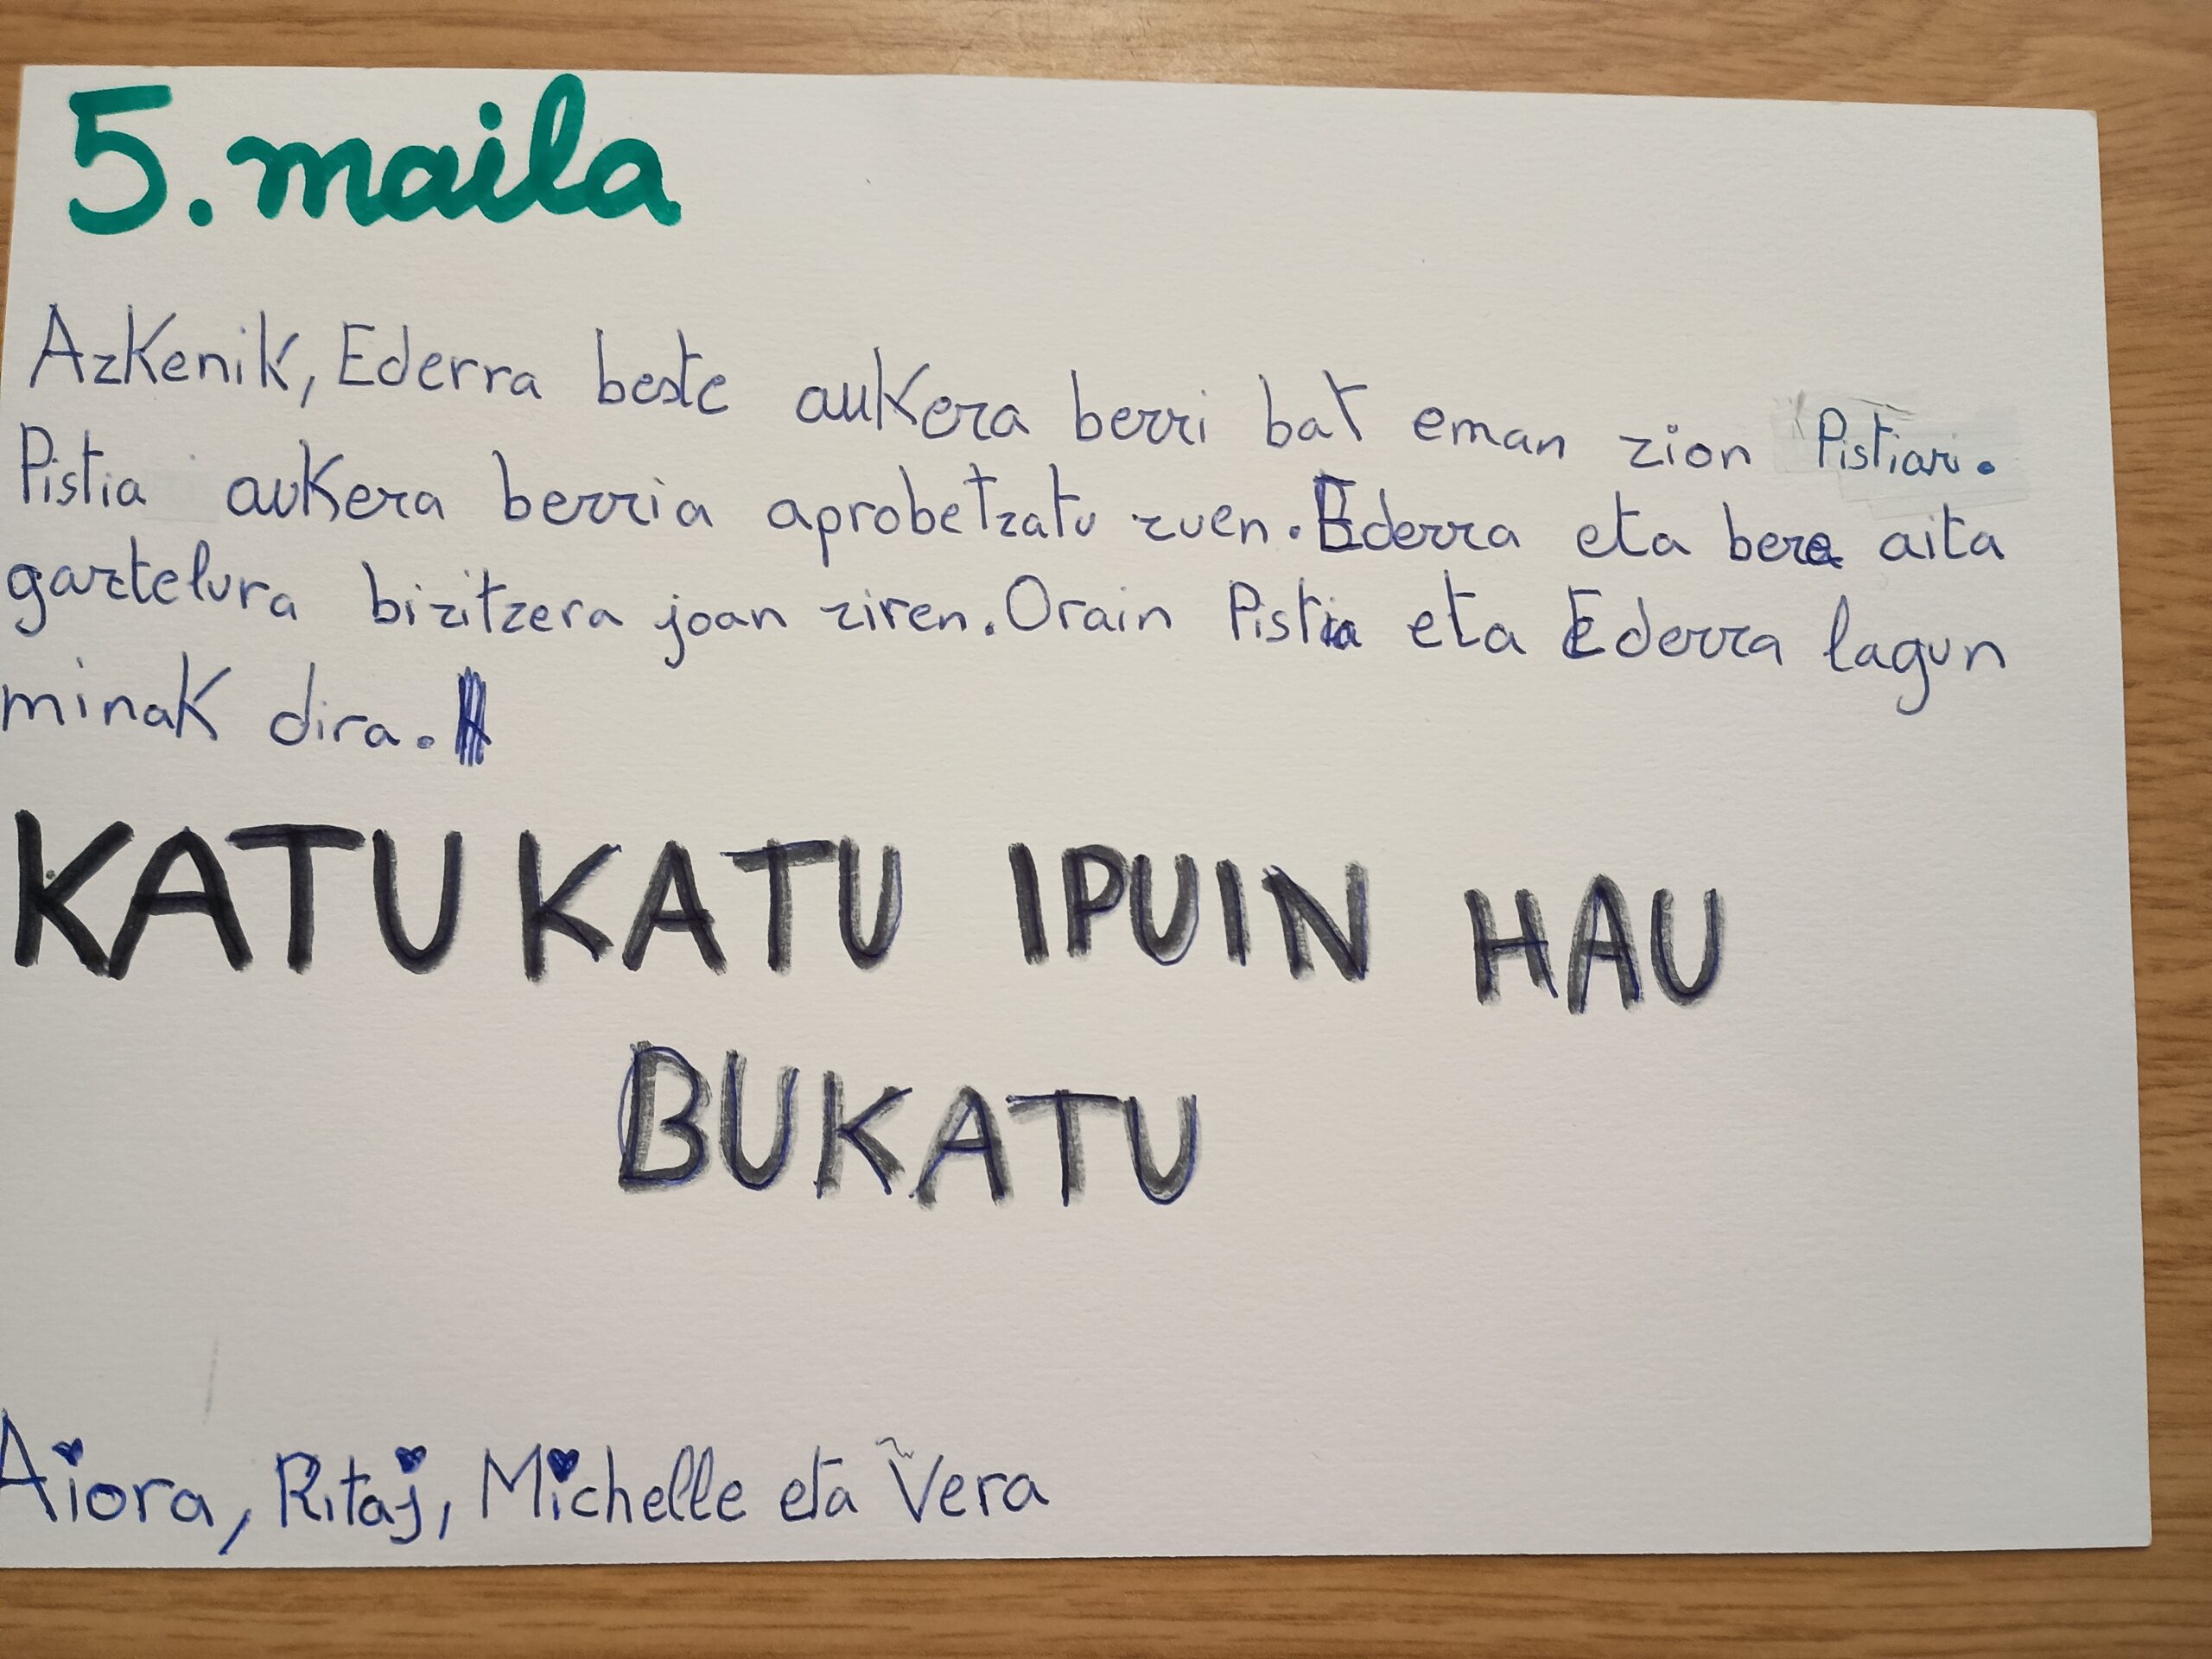 5. maila
Azkenik, Ederra beste aukera berri bat eman zion Pistiari.
Pistia aukera berria aprobetzatu zuen. Ederra eta bere aita
gaztelura bizitzera joan ziren. Orain Pistia eta Ederra lagun
minak dira.
KATU KATU IPUIN HAU
BUKATU
Aiora, Ritaj, Michelle eta Vera